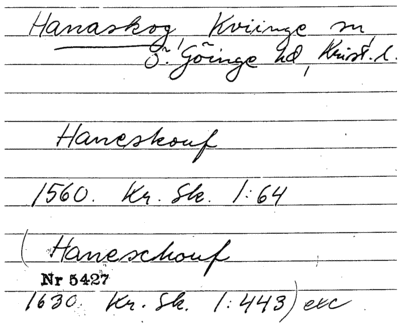 Hanaskog, Kviinge sn,
Ö. Göinge hd, Krist. l.
Haneskouf
1560. Kr. Sk. 1:64
(Haneschouf
Nr 5427
1630. Kr. Sk. 1:443) exc